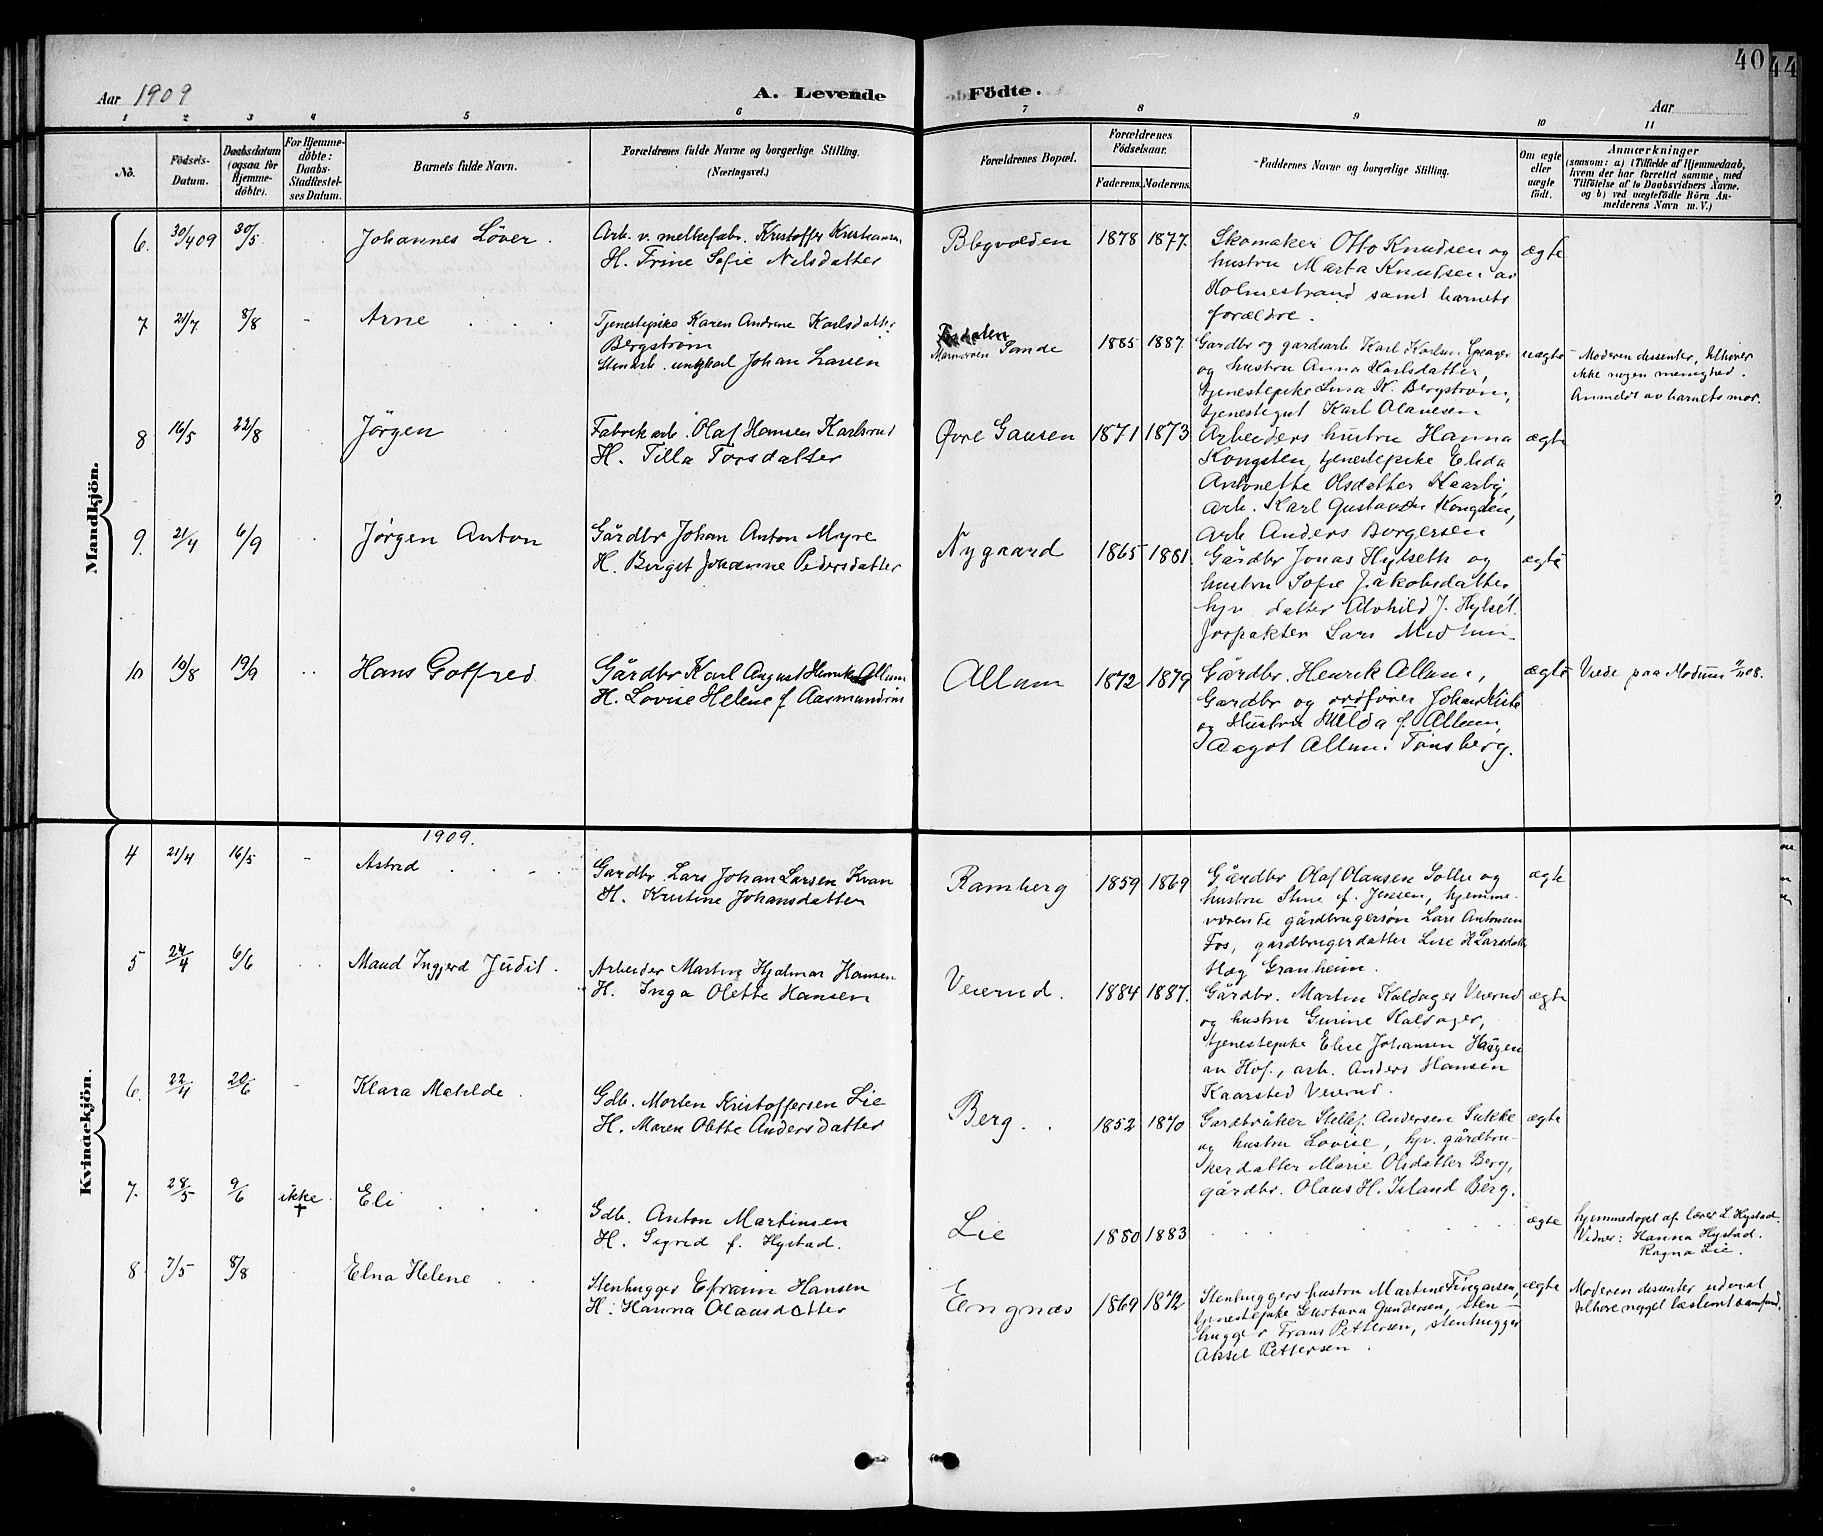 40
44
Aar 1909
A. Levende Födte.
Aar
1 2 3 4 5 6 7 8 9 10 11
No.
Födsels-Datum.
Daabsdatum (ogsaa for Hjemme-döbte).
For Hjemme-döbte: Daabs-Stadfæstel-ses Datum.
Barnets fulde Navn.
Forældrenes fulde Navne og borgerlige Stilling.
(Næringsvei.)
Forældrenes Bopæl.
Forældrenes Födselsaar.
Faderens. Moderens.
Faddernes Navne og borgerlige Stilling.
Om ægte eller uægte födt.
Anmærkninger
(saasom: a) i Tilfælde af Hjemmedaab,
hvem der har forrettet samme, med
Tilföielse af to Daabsvidners Navne,
og b) ved uægtefödte Börn An-
melderens Navn m. V.)
Mandkjön.
6. 30/4 09 30/5 Johannes Löver.
Arb. v. melkefabr. Kristoffer Kristiansen
H. Trine Sofie Nilsdatter
1878 1877.
Skomaker Otto Knudsen og
hustru Marta Knudsen av
Holmestrand samt barnets
forældre.
ægte
7. 21/7 8/8 - Arne
Tjenestepike Karen Andrine Karlsdatter
Bergström
Stenarb. ungkarl Johan Larsen
Sande
1885 1887
Gardbr og gardarb Karl Karlsen
og hustru Anna Karlsdatter,
tjenestepike Lina K. Bergström,
tjenestegut Karl Olavesen
uægte
Moderen dissenter, tilhører
ikke nogen menighed.
Anmeldt av barnets mor.
8 16/5 22/8 Jörgen
Fabrikarb. Olaf Hansen Karlsrud
H. Tilla Torsdatter
Øvre Gausen
1871 1873
Arbeiders hustru Hanna
Kongsten, tjenestepike Elida
Antonette Olsdatter Kaarby,
arb. Karl Gustavsen Kongsten,
arb Anders Borgersen
ægte
9. 21/4 6/9 Jörgen Anton
Gårdbr Johan Anton Myre
H. Birgit Johanne Pedersdatter
Nygaard
1865 1881.
Gårdbr Jonas Hylseth og
hustru Sofie Jakobsdatter,
hjv datter Alvhild J. Hylset.
Lars
ægte
10 19/8 19/9 Hans Gotfred
Gårdbr Karl August Henriks. Allum
H. Lovise Helene f. Aasmundrud
Allum
1872 1879
Gårdbr. Henrik Allum,
Gardbr og Johan Kiste
og Hustru Hilda f. Allum,
Aagot Allum. Tönsberg.
ægte
Viede paa Modum
Kvindekjön.
1909.
4 21/4 16/5 - Astrid
Gardbr. Lars Johan Larsen Kvan
H. Kristine Johansdatter
Ramberg
1859 1869
Gårdbr Olaf Olausen Solli og
hustru Stine f. Jensen, hjemme-
værende gårdbrugersön Lars Antonsen
Fos, gardbrugerdatter Lise H. Larsdatter
Hæg Granheim.
ægte
5 24/4 6/6 Maud Ingjerd Judit.
Arbeider Martin Hjalmar Hansen
H. Inga Olette Hansen
Veierud.
1884 1887.
Gårdbr. Martin Kaldager Veierud
og hustru Gurine Kaldager,
tjenestepike Elise Johansen Haugen
av Hof, arb. Anders Hansen
Kaarsted Veierud.
ægte
6. 22/4 20/6 - Klara Matilde.
Gdb. Morten Kristoffersen Lie
H. Maren Olette Andersdatter
Berg.
1852 1870
Gardbruker Stillef. Andersen Sukke
og hustru Lovise, hjv. gårdbru-
kerdatter Marie Olsdatter Berg,
gårdbr. Olaus H. Island Berg.
ægte
7. 28/5 9/6 ikke † Eli
Gdb. Anton Martinsen
H. Sigrid f. Hystad.
Lie
1880 1883
ægte
hjemmedöpt af lærer L. Hystad.
Vidner: Hanna Hystad.
Ragna Lie.
8. 7/5 8/8 Elna Helene
Stenhugger Efraim Hansen
H. Hanna Olausdatter
Engnæs
1869 1872
Stenhuggers hustru Martine Fingarsen,
tjenestepike Gustava Gundersen, sten-
hugger Frans Pettersen, stenhugger
Aksel Pettersen.
ægte
Moderen dissenter uden at
tilhøre noget bestemt samfund.